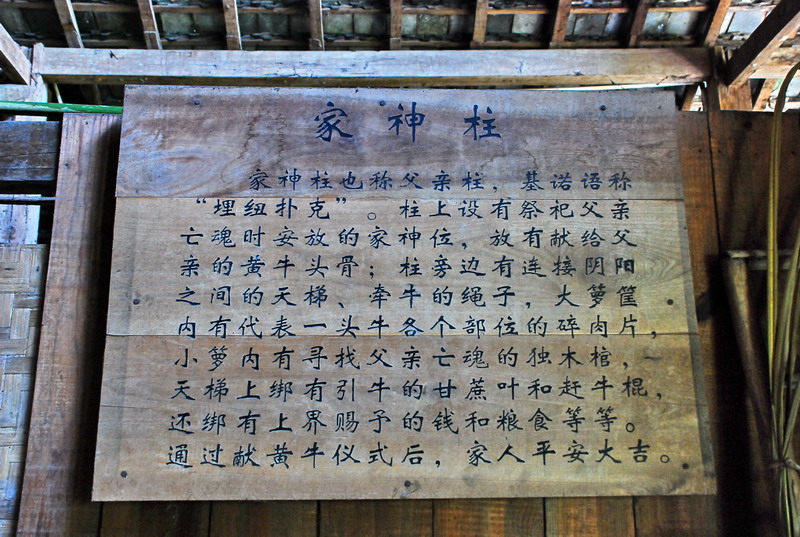 家神柱
家神柱也称父亲柱，基诺语称
“埋纽扑克”。柱上设有祭祀父亲
亡魂时安放的家神位，放有献给父
亲的黄牛头骨；柱旁边有连接阴阳
之间的天梯、牵牛的绳子，大箩筐
内有代表一头牛各个部位的碎肉片，
小箩内有寻找父亲亡魂的独木棺，
天梯上绑有引牛的甘蔗叶和赶牛棍，
还绑有上界赐予的钱和粮食等等。
通过献黄牛仪式后，家人平安大吉。